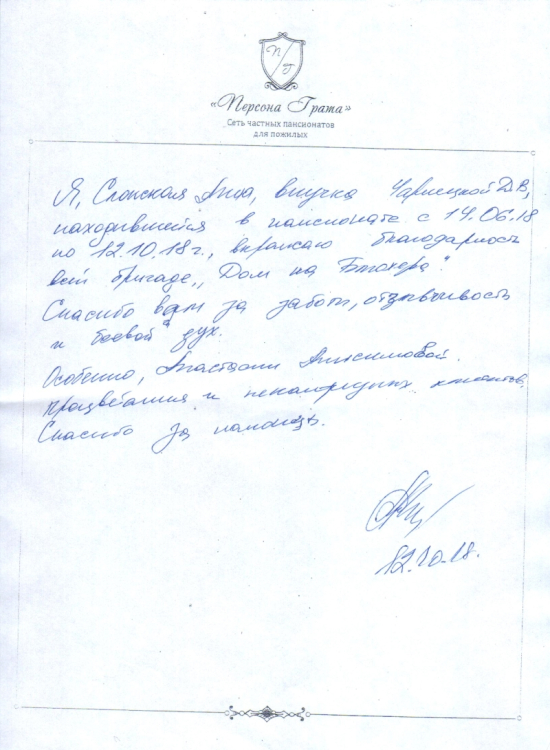 П/Г
«Персона Грата»
Сеть частных пансионатов
для пожилых
Я, Слонская Анна, внучка Чарнецкой Д.В,
находившейся в пансионате с 14.06.18
по 12.10.18г., выражаю благодарность
всей бригаде „Дом на Блюхера".
Спасибо вам за заботу, отзывчивость
и "боевой" дух.
Особенно, Анастасии Анисимовой.
Процветания и клиентов.
Спасибо за помощь.
12.10.18.